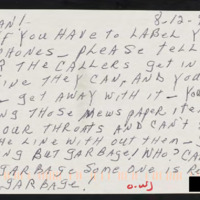 AN! 8-12-
F YOU HAVE TO LABEL Y
PHONES - PLEASE TELL
THE CALLERS GET IN
THEY CAN, AND YOU
GET AWAY WITH IT - YOU
NG THOSE NEWSPAPER ITE
OUR THROATS AND CAN'T
HE LINE WITH OUT THEM -
NG BUT GARBAGE! NHO? CA
GARBAGE SOME ONE IS RE
GARBAGE. O.WJ